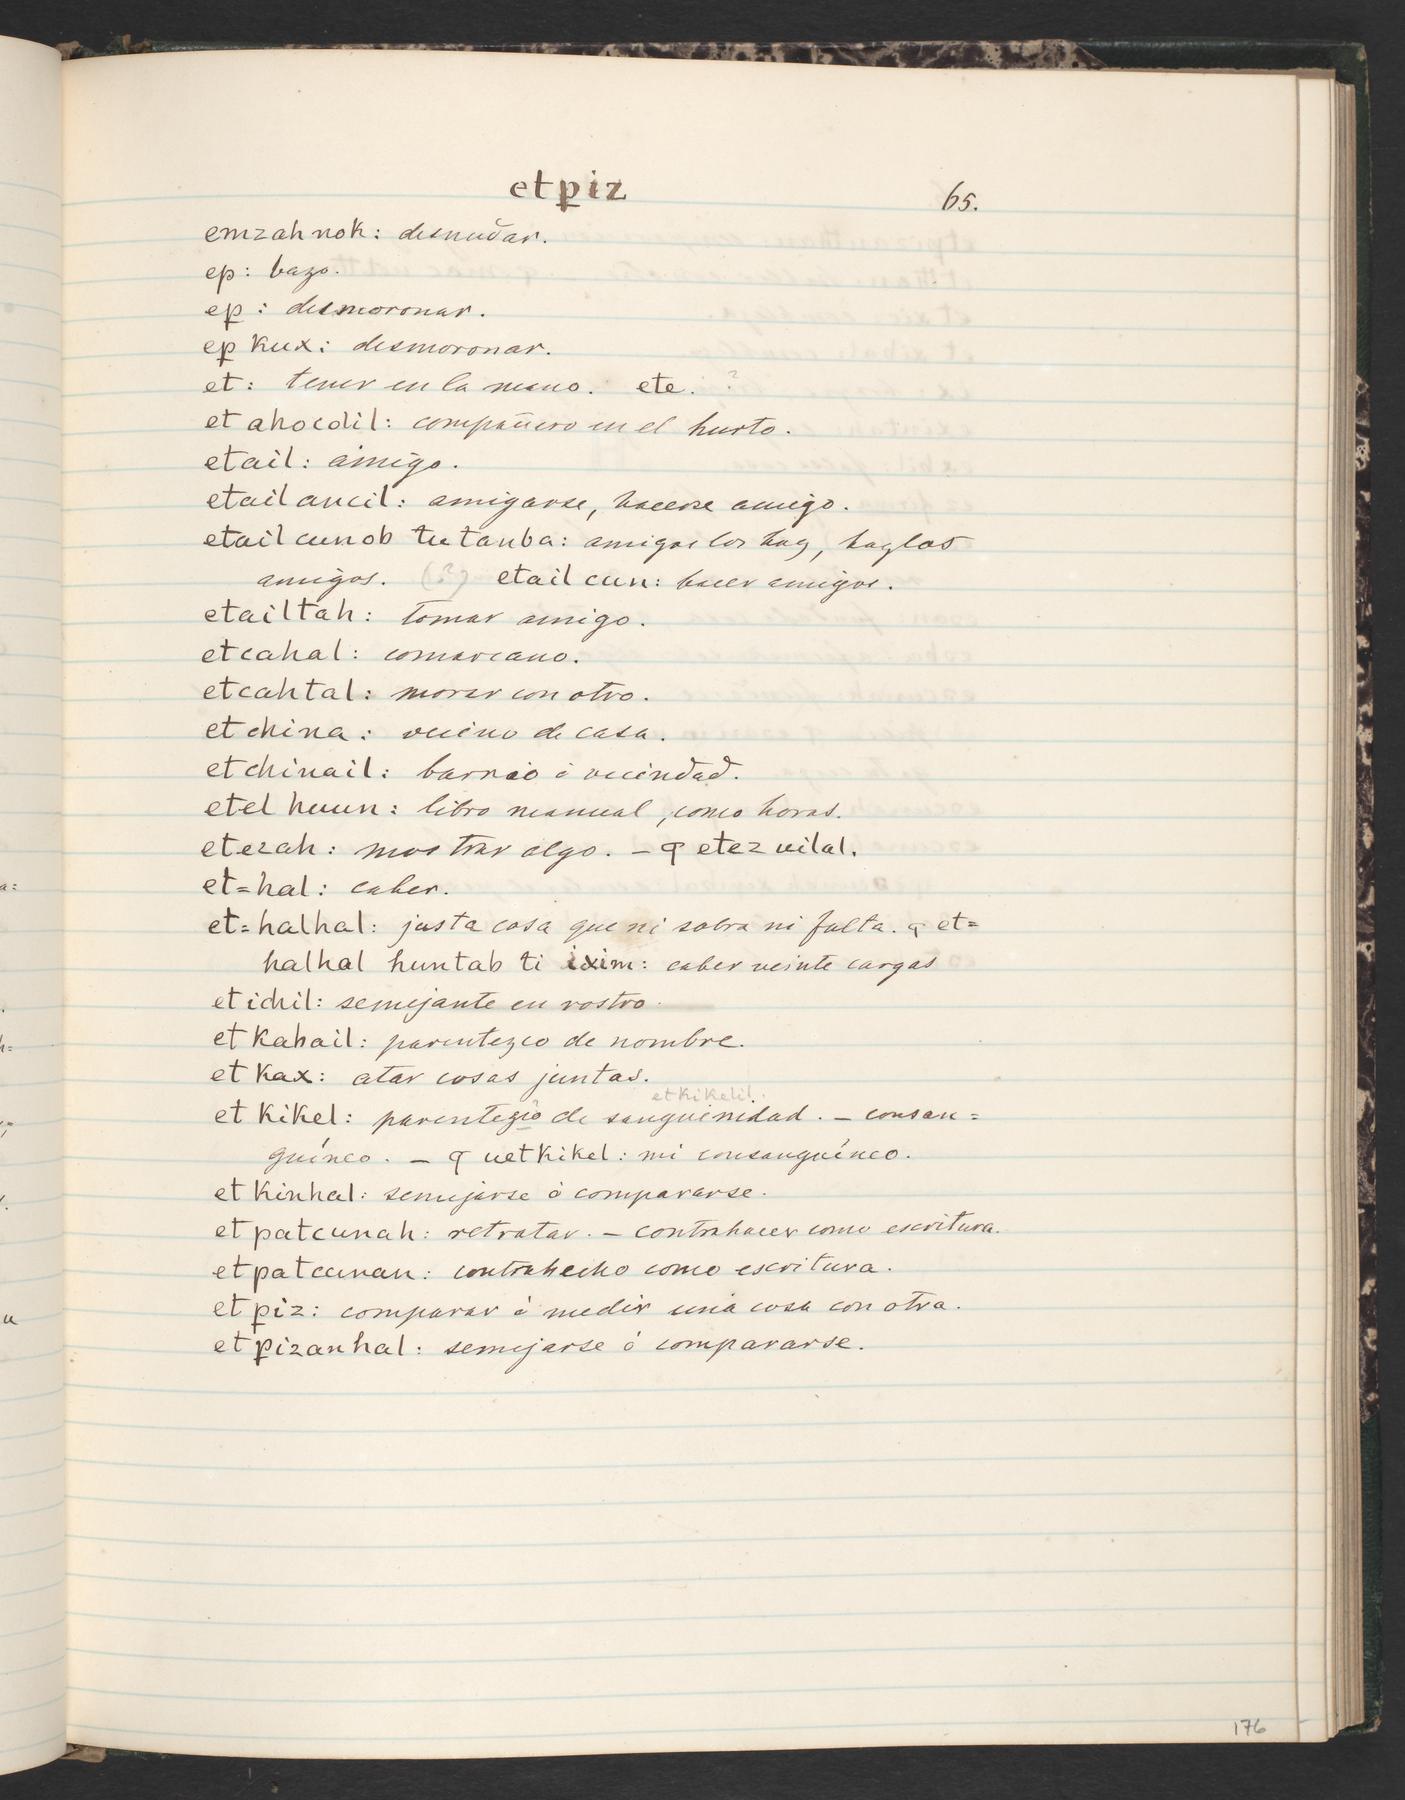 etꝑiz 65.
emzah nok: desnudar.
ep: bazo.
eꝑ: desmoronar.
eꝑ kux: desmoronar.
et: tener en la mano. ete. ?
et ahocolil: compañero en el hurto.
etail: amigo.
etail ancil: amigarse, hacerse amigo.
etail cunob tu tanba: amigos los hay, haylos
amigos. (?) etail cun: hacer amigos.
etailtah: tomar amigo.
etcahal: comarcano.
etcahtal: morar con otro.
et china: vecino de casa.
et chinail: barrio ó vecindad.
etel huun: libro manual, como horas.
etezah: mostrar algo. — ꝗ etez uilal.
et=hal: caber.
et=halhal: justa cosa que ni sobra ni falta. ꝗ et=
halhal huntab ti ixim: caber veinte cargas
et ichil: semejante en rostro.
et kabail: parentezco de nombre.
et kax: atar cosas juntas.
etkikelil.
et kikel: parentezco de sanguinidad. — consan=
guíneo. — ꝗ uet kikel: mi consanguíneo.
et kinhal: semejarse ó compararse.
et patcunah: retratar. — contrahacer como escritura.
et patcunan: contrahecho como escritura.
et ꝑiz: comparar ó medir una cosa con otra.
et ꝑizanhal: semejarse ó compararse.
176